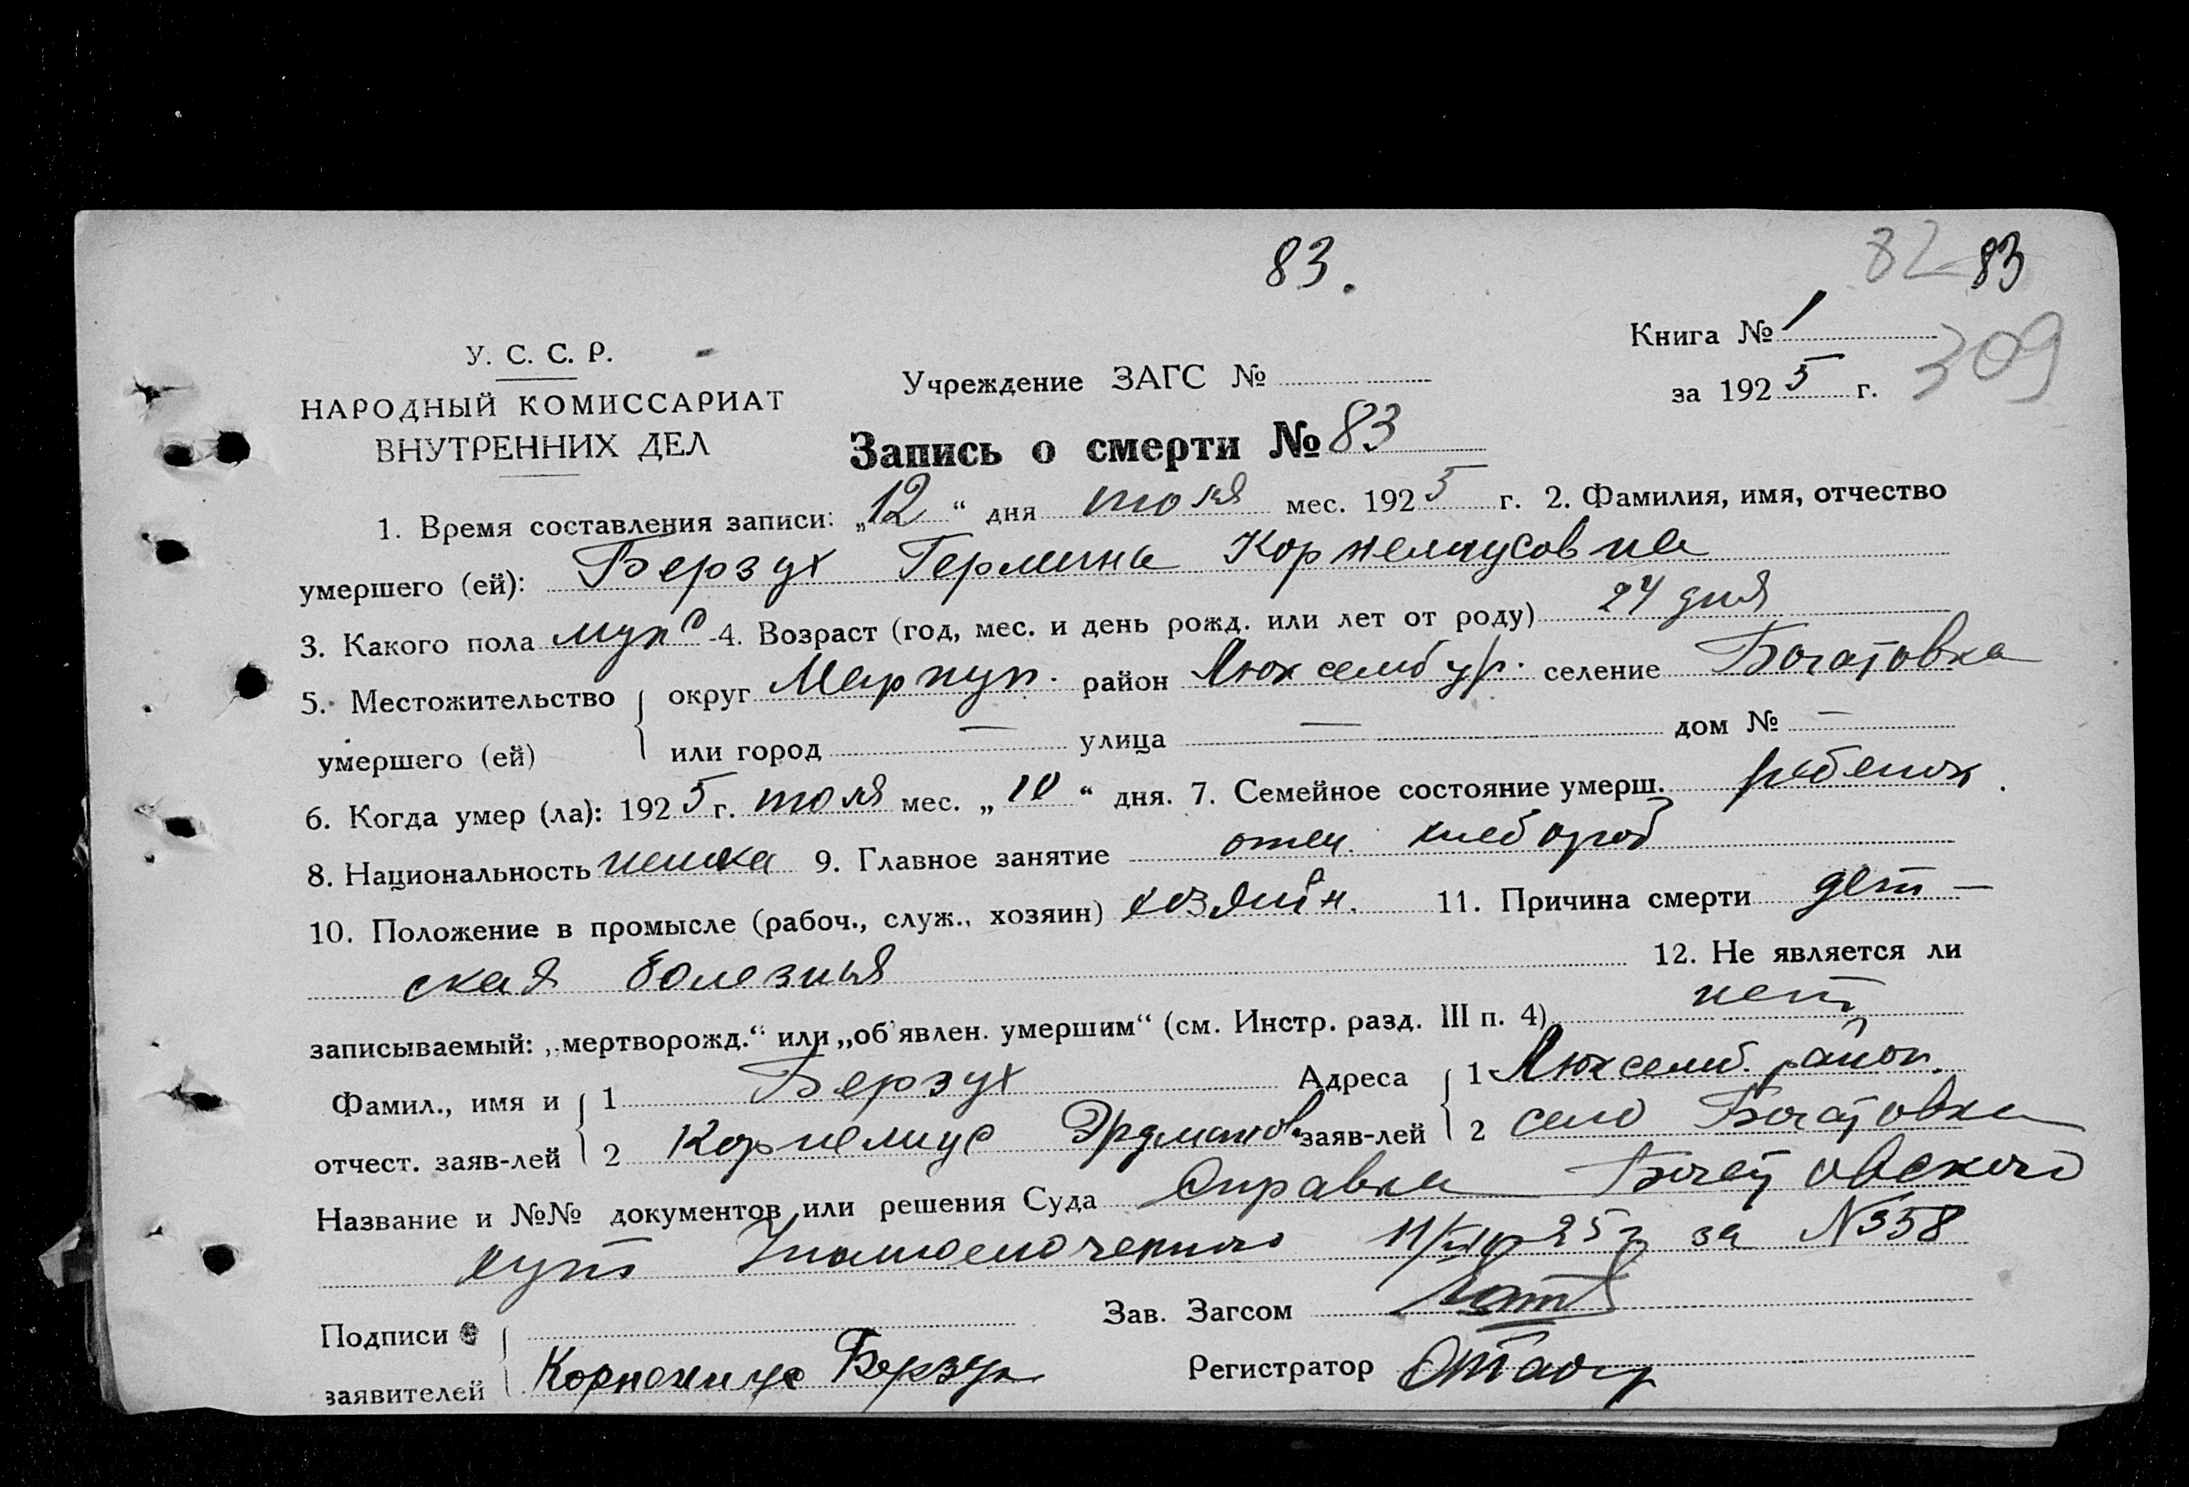 83.
82 83
У. С. С. Р.
НАРОДНЫЙ КОМИССАРИАТ
ВНУТРЕННИХ ДЕЛ
Учреждение ЗАГС №
Книга № 1
за 1925 г. 309
Запись о смерти № 83
1. Время составления записи: „12“ дня июля мес. 1925 г. 2. Фамилия, имя, отчество
умершего (ей): Берзух Гермина Корнелиусовна
3. Какого пола муж 4. Возраст (год, мес. и день рожд. или лет от роду) 24 дня
5. Местожительство округ Мариуп. район Люксембур. селение Богатовка
умершего (ей) или город — улица — дом № —
6. Когда умер (ла): 1925 г. июля мес. „10“ дня. 7. Семейное состояние умерш. ребенок
8. Национальность немка 9. Главное занятие отец хлебороб
10. Положение в промысле (рабоч., служ., хозяин) хозяин. 11. Причина смерти дет-
ская болезнья 12. Не является ли
записываемый: „мертворожд.“ или „об'явлен. умершим“ (см. Инстр. разд. III п. 4) нет
Фамил., имя и 1 Берзух Адреса 1 Люксемб. район.
отчест. заяв-лей 2 Корнелиус Эрдманов. заяв-лей 2 село Богатовка
Название и №№ документов или решения Суда Справка Богатовского
Уполномоченного 25 г за №358
Подписи Зав. Загсом
заявителей Корнелиус Берзух Регистратор